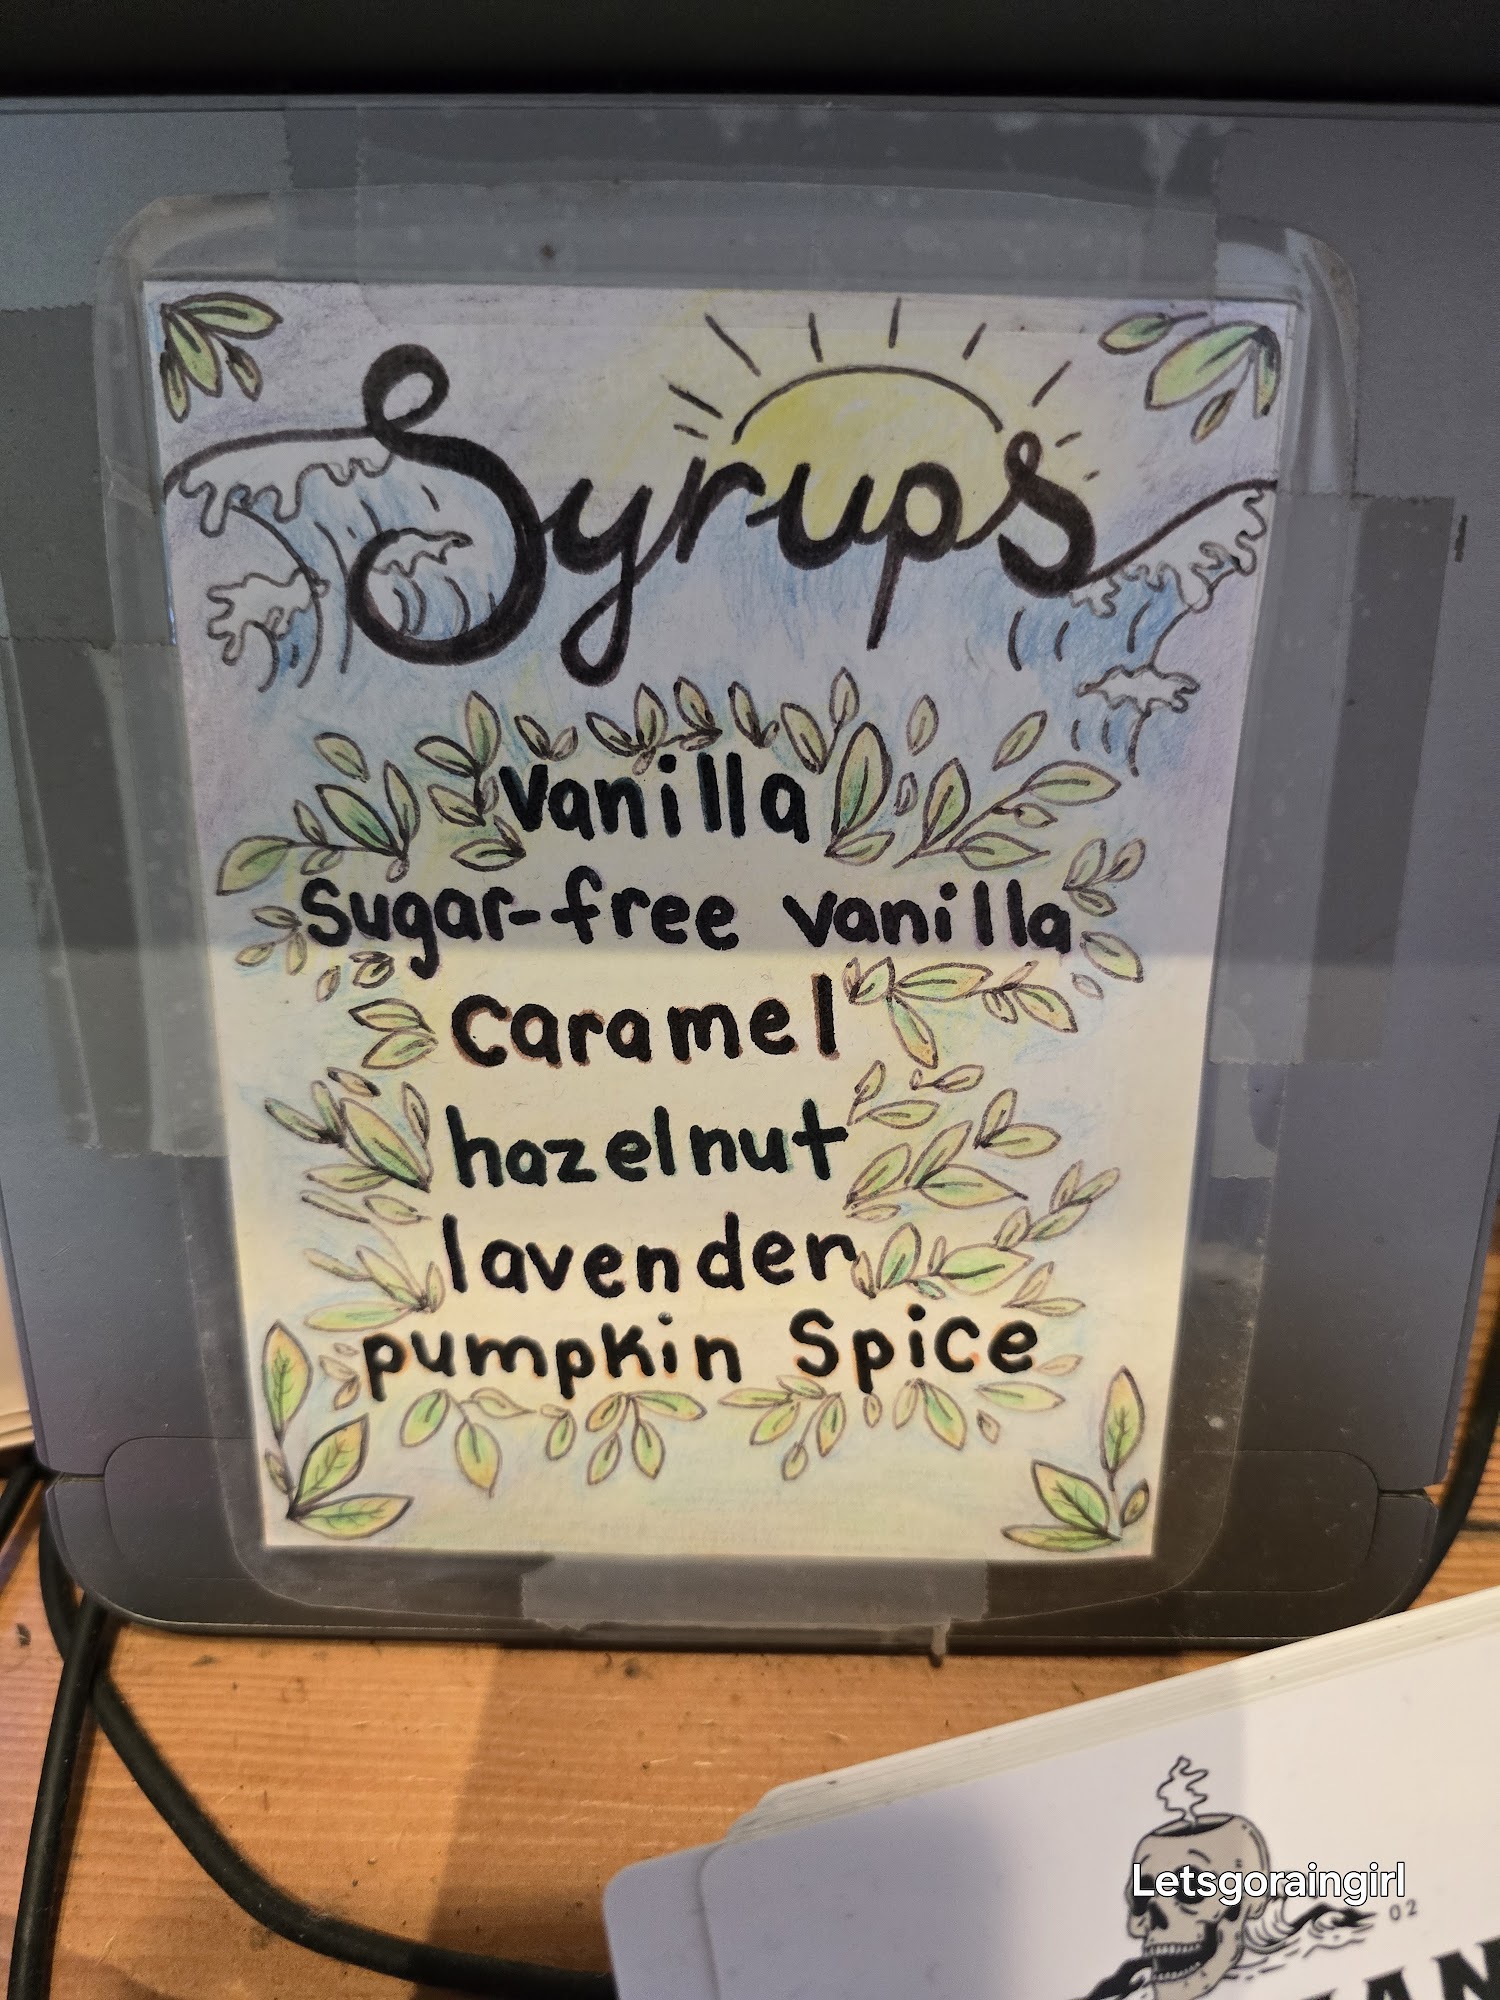 Syrups
Vanilla
Sugar-free vanilla
Caramel
hazelnut
lavender
pumpkin Spice
Letsgoraingirl
02